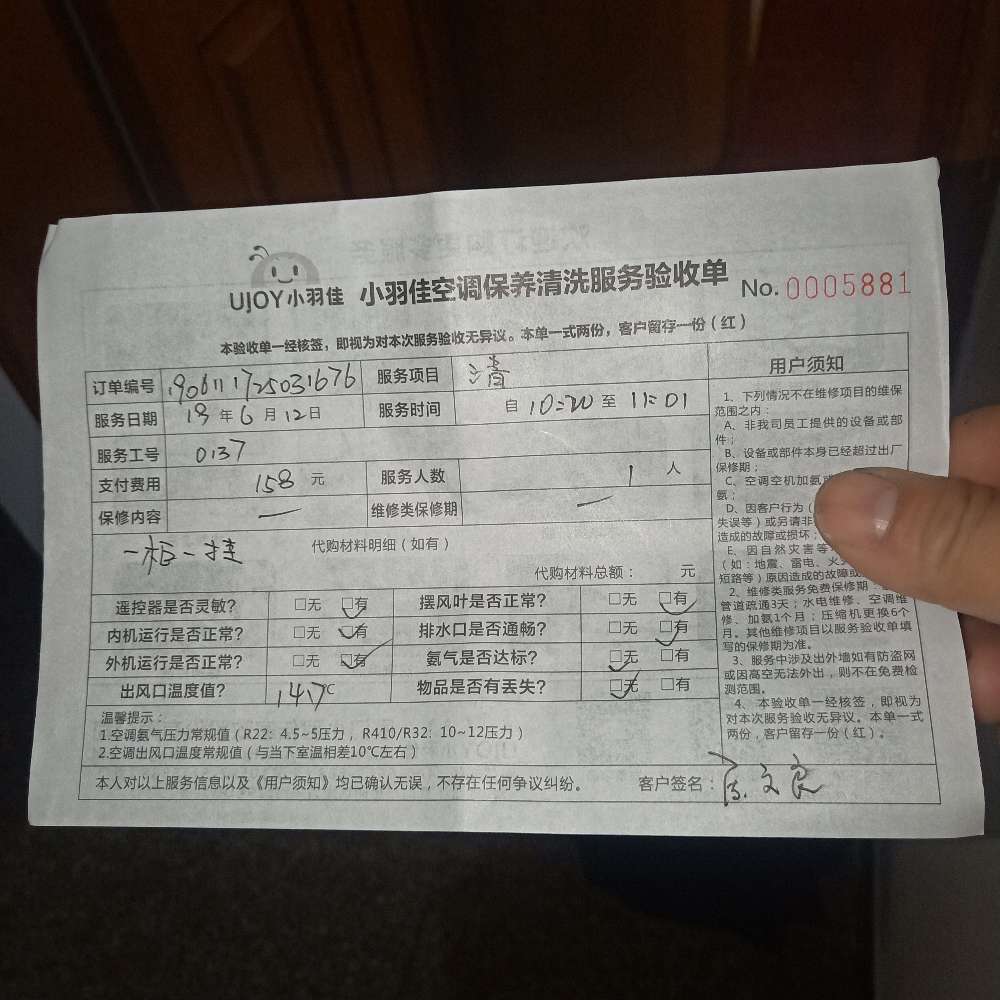 UJOY小羽佳 小羽佳空调保养清洗服务验收单 No. 0005881
本验收单一经核签，即视为对本次服务验收无异议。本单一式两份，客户留存一份（红）
订单编号 1906111725031676 服务项目 清
服务日期 19年6月12日 服务时间 自 10:20 至 11:01
服务工号 0137
支付费用 158 元 服务人数 1 人
保修内容 — 维修类保修期 —
一柜一挂 代购材料明细（如有）
代购材料总额： 元
遥控器是否灵敏？ □无 □有 摆风叶是否正常？ □无 □有
内机运行是否正常？ □无 □有 排水口是否通畅？ □无 □有
外机运行是否正常？ □无 □有 氨气是否达标？ □无 □有
出风口温度值？ 14.7℃ 物品是否有丢失？ □无 □有
温馨提示：
1.空调氨气压力常规值（R22: 4.5~5压力， R410/R32: 10~12压力）
2.空调出风口温度常规值（与当下室温相差10℃左右）
本人对以上服务信息以及《用户须知》均已确认无误，不存在任何争议纠纷。 客户签名：陈文良
用户须知
1、下列情况不在维修项目的维保
范围之内：
A、非我司员工提供的设备或部
件；
B、设备或部件本身已经超过出厂
保修期；
C、空调空机加氨或
氨；
D、因客户行为（
失误等）或另请非
造成的故障或损坏；
E、因自然灾害等
（如：地震、雷电、火
短路等）原因造成的故障或
2、维修类服务免费保修期
管道疏通3天；水电维修、空调维
修、加氨1个月；压缩机更换6个
月。其他维修项目以服务验收单填
写的保修期为准。
3、服务中涉及出外墙如有防盗网
或因高空无法外出，则不在免费检
测范围。
4、本验收单一经核签，即视为
对本次服务验收无异议。本单一式
两份，客户留存一份（红）。